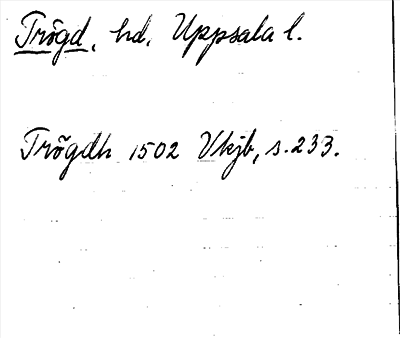 Trögd, hd, Uppsala l.
Trögdh 1502 Vkjb, s. 233.